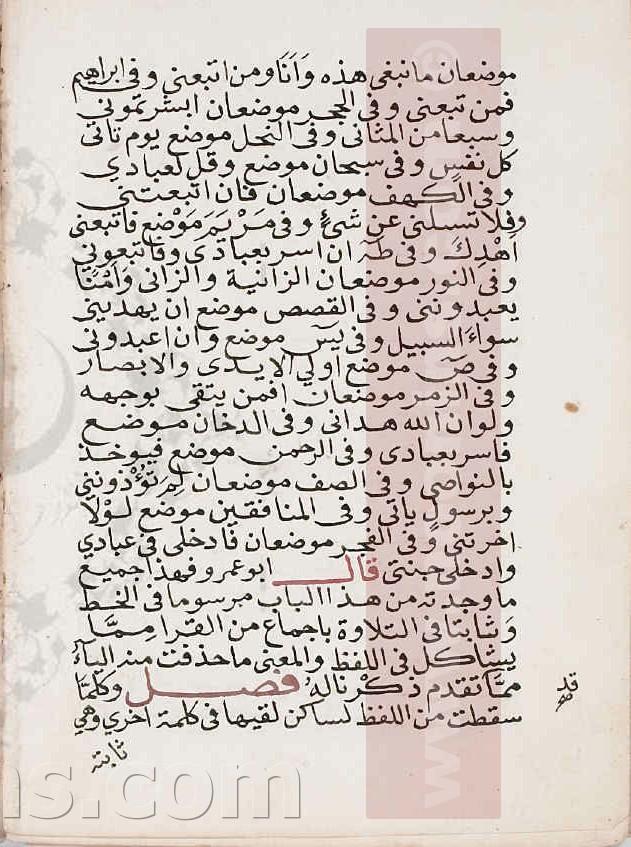 موضعان ما نبغى هذه وَاَنَا ومن اتبعنى وفى ابراهيم
فمن تبعنى وفى الحجر موضعان ابشرتمونى
وسبعا من المثانى وفى النحل موضع يوم تاتى
كل نفس وفى سبحان موضع وقل لعبادي
وفى الكهف موضعان فان اتبعتنى
وفلا تسئلنى عن شئٍ وفى مَرْيَمَ مَوْضع فاتبعنى
اَهْدِكَ وفى طه ان اسر بعبادى وفاتبعونى
وفى النور موضعان الزانية والزانى وَاَمْنًا
يعبدوننى وفى القصص موضع ان يهدينى
سواءَ السبيل وفى يسٓ موضع وان اعبدونى
وفى صٓ موضع اولي الايدى والابصار
وفى الزمر موضعان افمن يتقى بوجهه
ولوان الله هدانى وفى الدخان موضع
فاسر بعبادى وفى الرحمن موضع فيوخذ
بالنواصى وفى الصف موضعان لِمَ تؤْذوننى
وبرسولٍ ياتى وفى المنافقين موضع لَوْلَا
اخرتنى وفى الفجر موضعان فادخلى فى عبادي
وادخلى جنتى قال ابو عمرو فهذا جميع
ما وجدته من هذا الباب مرسوما فى الخط
وثابتا فى التلاوة باجماع من القرا ممّا
يشاكل فى اللفظ والمعنى ما حذفت منه الياءُ
ممّا تقدم ذكرناله فصل وكلمّا
سقطت من اللفظ لساكن لقيها فى كلمة اخري وهي
ثابته
قد
www.
ns.com